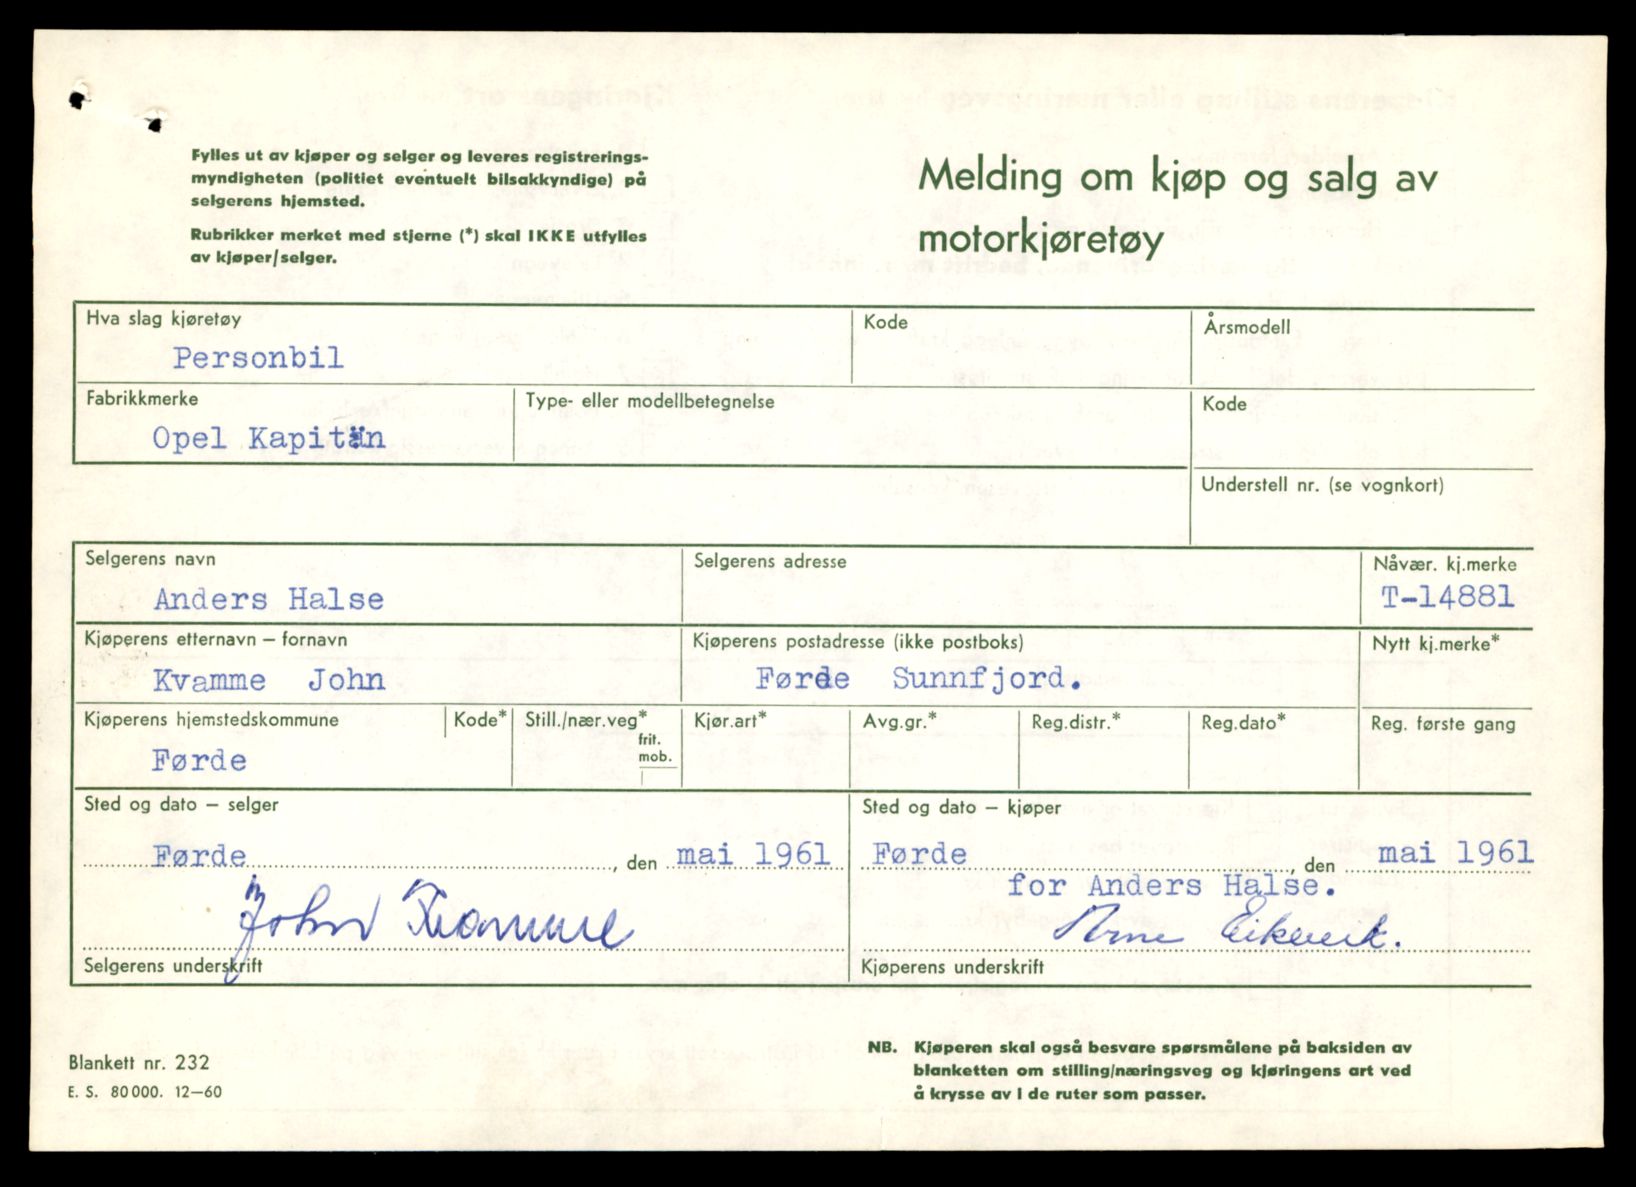 Fylles ut av kjøper og selger og leveres registrerings-
myndigheten (politiet eventuelt bilsakkyndige) på
selgerens hjemsted.
Rubrikker merket med stjerne (*) skal IKKE utfylles
av kjøper/selger.
Melding om kjøp og salg av
motorkjøretøy
Hva slag kjøretøy
Personbil
Kode
Årsmodell
Fabrikkmerke
Opel Kapitän
Type- eller modellbetegnelse
Kode
Understell nr. (se vognkort)
Selgerens navn
Anders Halse
Selgerens adresse
Nåvær. kj.merke
T-14881
Kjøperens etternavn – fornavn
Kvamme John
Kjøperens postadresse (ikke postboks)
Førde Sunnfjord.
Nytt kj.merke*
Kjøperens hjemstedskommune
Førde
Kode*
Still./nær.veg*
frit.
mob.
Kjør.art*
Avg.gr.*
Reg.distr.*
Reg.dato*
Reg. første gang
Sted og dato – selger
Førde, den mai 1961
John Kvamme
Selgerens underskrift
Sted og dato – kjøper
Førde, den mai 1961
for Anders Halse.
Arne Eikeveik.
Kjøperens underskrift
Blankett nr. 232
E. S. 80 000. 12–60
NB. Kjøperen skal også besvare spørsmålene på baksiden av
blanketten om stilling/næringsveg og kjøringens art ved
å krysse av i de ruter som passer.